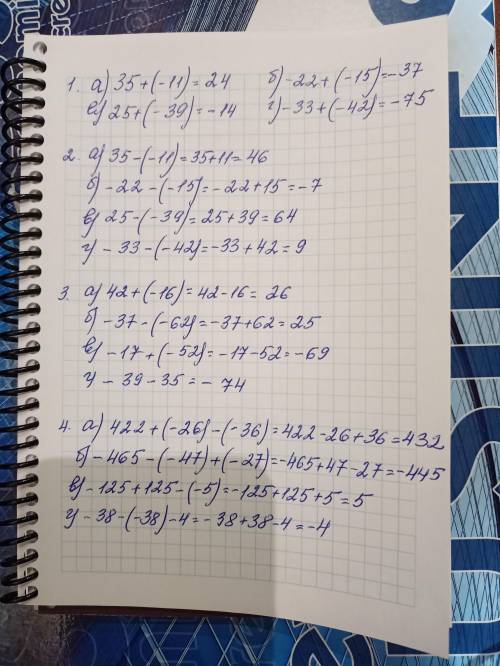 1. а) 35+(-11)=24 б) -22+(-15)=-37
в) 25+(-39)=-14 г) -33+(-42)=-75
2. а) 35-(-11)=35+11=46
б) -22-(-15)=-22+15=-7
в) 25-(-39)=25+39=64
г) -33-(-42)=-33+42=9
3. а) 42+(-16)=42-16=26
б) -37-(-62)=-37+62=25
в) -17+(-52)=-17-52=-69
г) -39-35=-74
4. а) 422+(-26)-(-36)=422-26+36=432
б) -465-(-47)+(-27)=-465+47-27=-445
в) -125+125-(-5)=-125+125+5=5
г) -38-(-38)-4=-38+38-4=-4